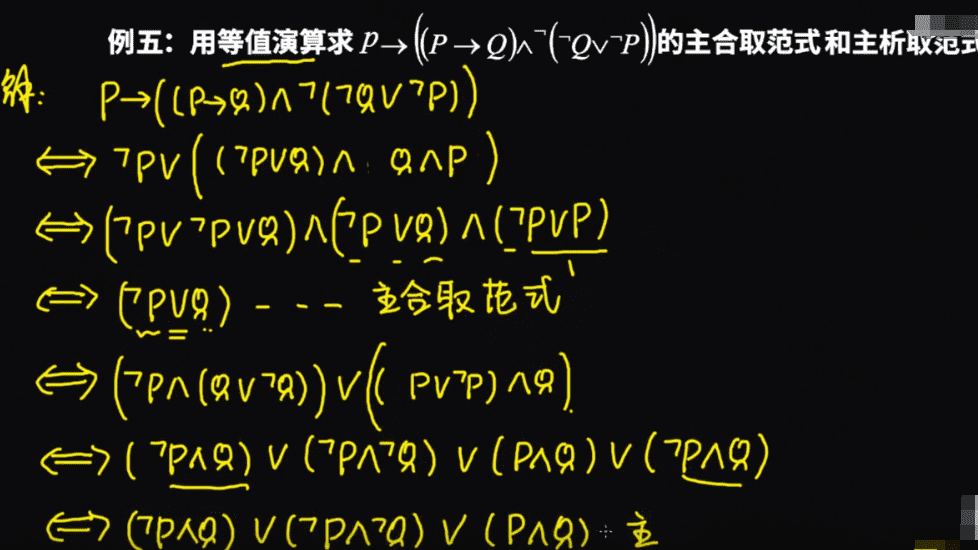 例五：用等值演算求 P→((P→Q)∧¬(¬Q∨¬P))的主合取范式和主析取范式
解： P→((P→Q)∧¬(¬Q∨¬P))
⟺ ¬P∨((¬P∨Q)∧ Q∧P)
⟺ (¬P∨¬P∨Q)∧(¬P∨Q)∧(¬P∨P)
1
⟺ (¬P∨Q) --- 主合取范式
⟺ (¬P∧(Q∨¬Q))∨((P∨¬P)∧Q)
⟺ (¬P∧Q)∨(¬P∧¬Q)∨(P∧Q)∨(¬P∧Q)
⟺ (¬P∧Q)∨(¬P∧¬Q)∨(P∧Q) 主